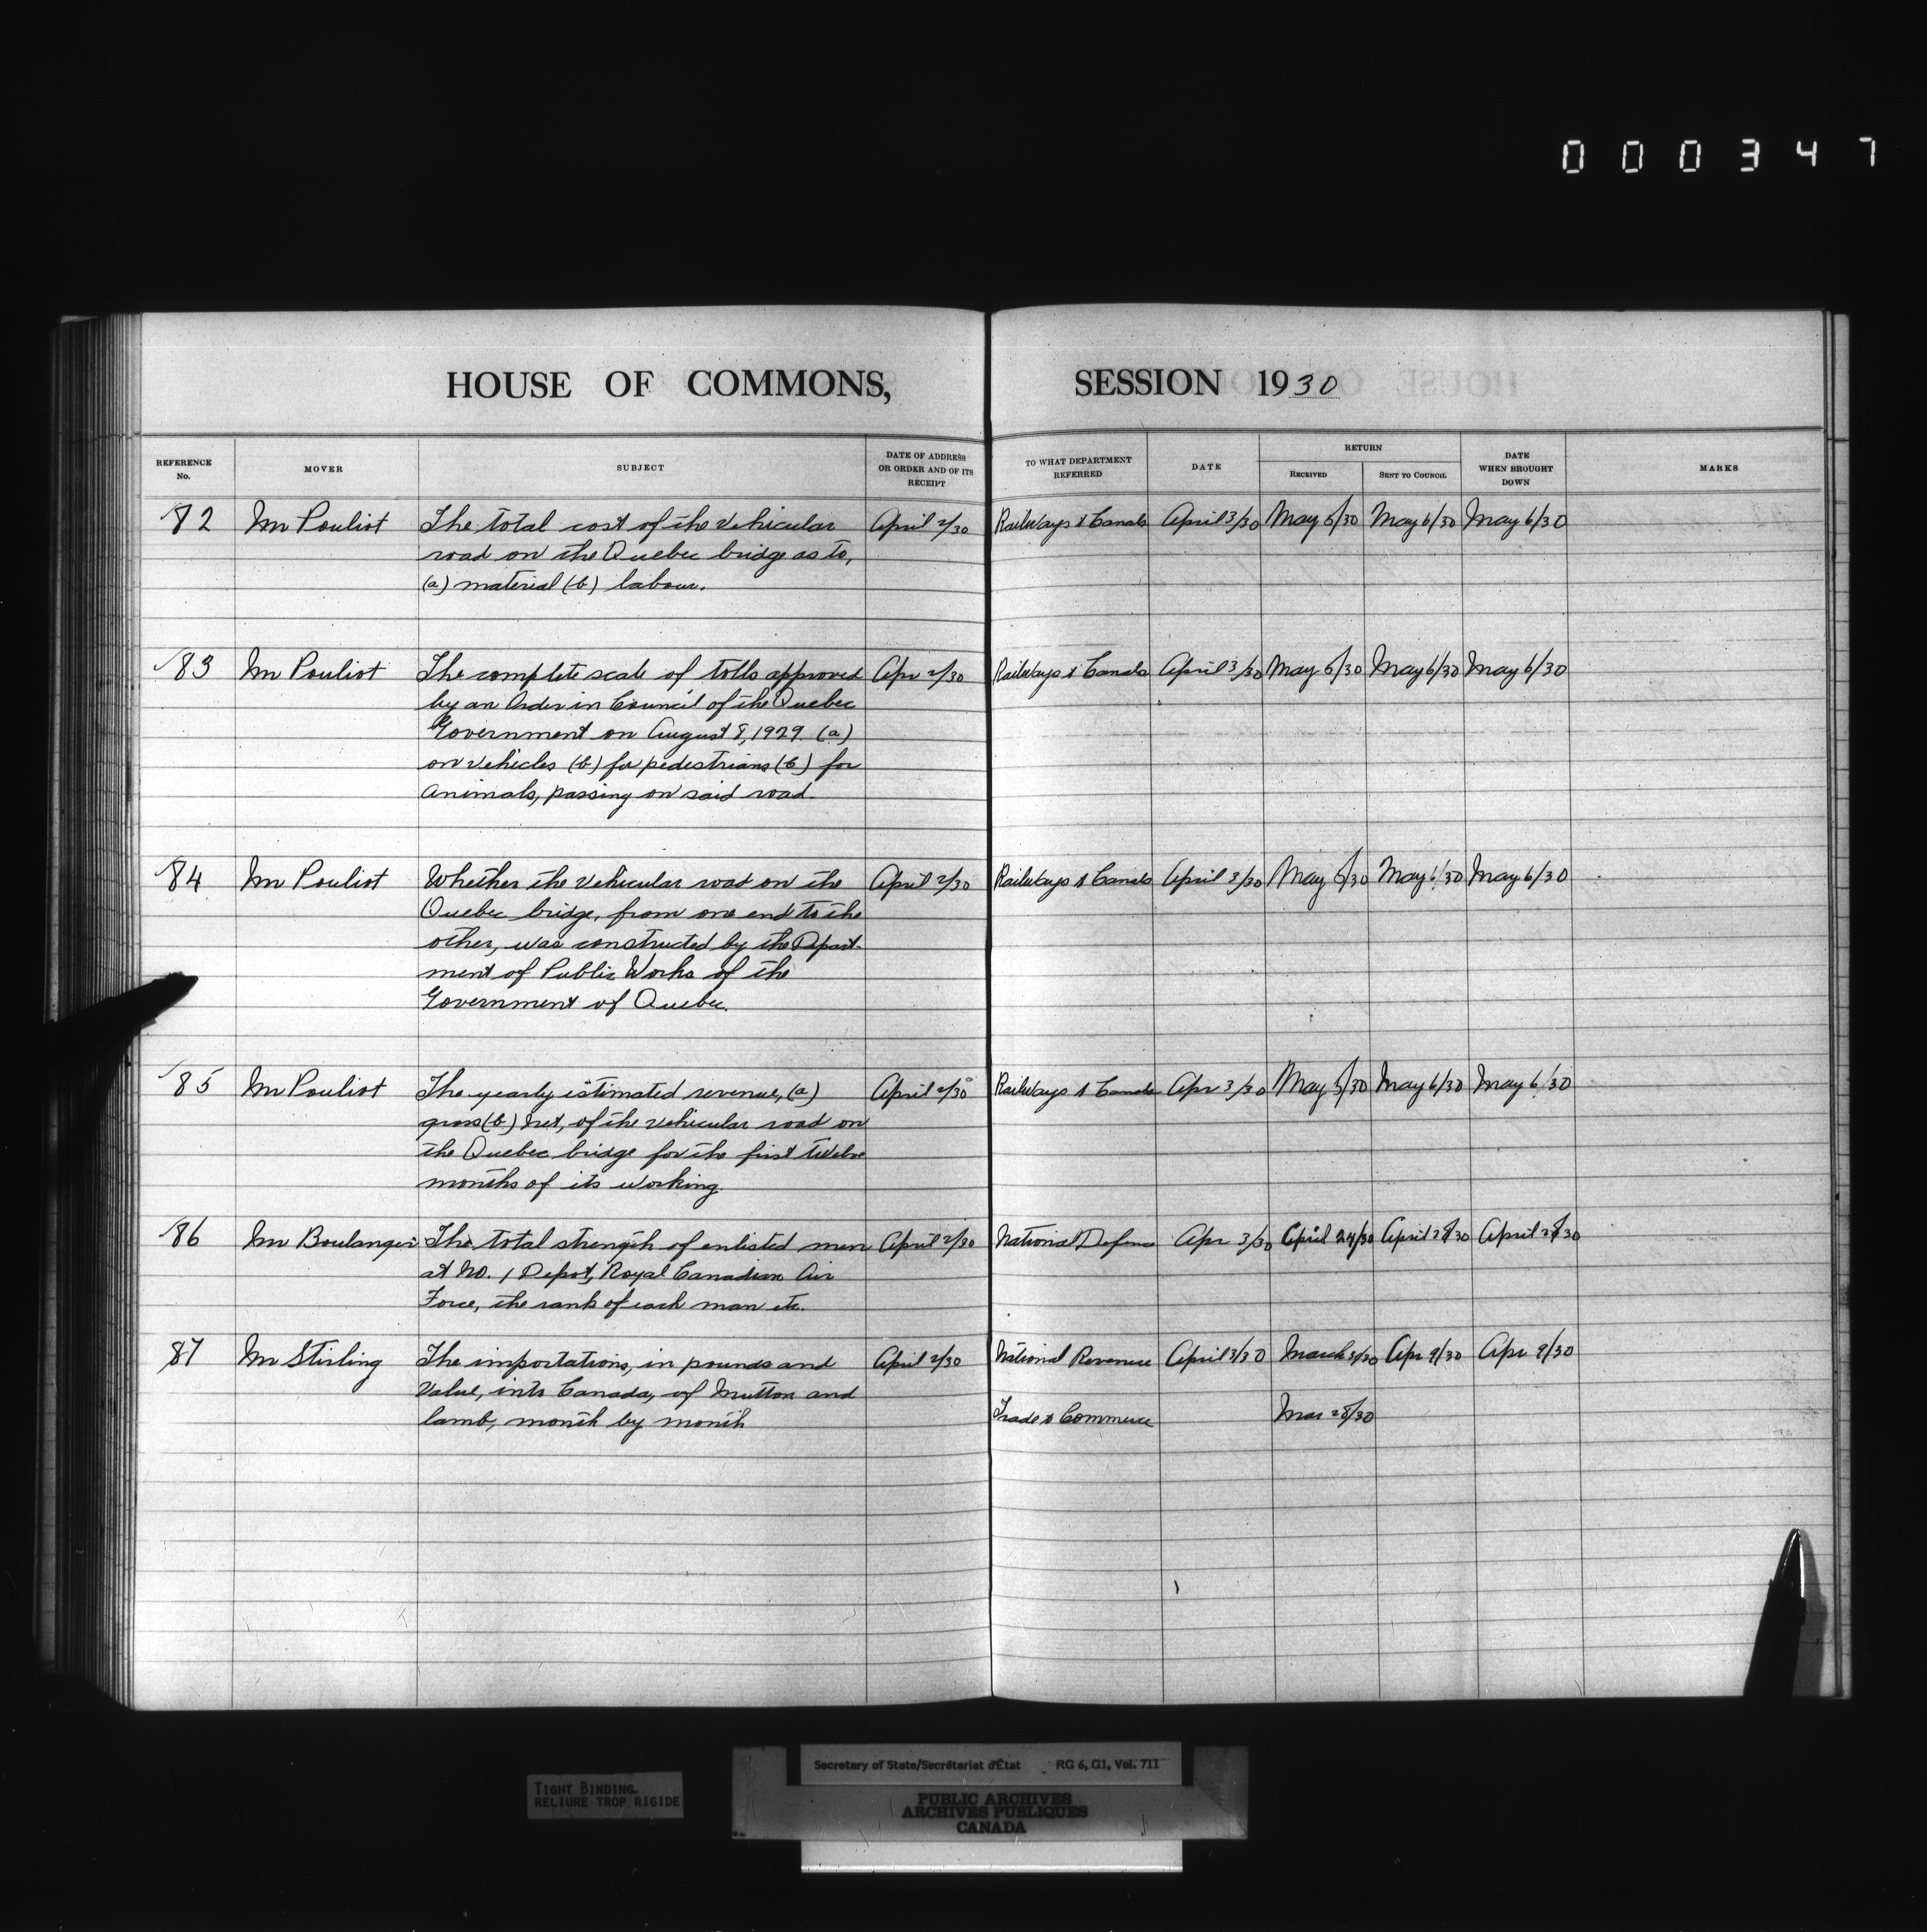 000347
HOUSE OF COMMONS, SESSION 1930
REFERENCE No. MOVER SUBJECT DATE OF ADDRESS OR ORDER AND OF ITS RECEIPT TO WHAT DEPARTMENT REFERRED DATE RETURN RECEIVED SENT TO COUNCIL DATE WHEN BROUGHT DOWN MARKS
82 Mr Pouliot The total cost of the vehicular April 2/30 Railways & Canals April 3/30 May 5/30 May 6/30 May 6/30
road on the Quebec bridge as to,
(a) material (b) labour.
83 Mr Pouliot The complete scale of tolls approved Apr 2/30 Railways & Canals April 3/30 May 5/30 May 6/30 May 6/30
by an Order in Council of the Quebec
Government on August 8, 1929. (a)
on vehicles (b) for pedestrians (c) for
animals, passing on said road.
84 Mr Pouliot Whether the vehicular road on the April 2/30 Railways & Canals April 3/30 May 5/30 May 6/30 May 6/30
Quebec bridge, from one end to the
other, was constructed by the Depart-
ment of Public Works of the
Government of Quebec.
85 Mr Pouliot The yearly estimated revenue, (a) April 2/30 Railways & Canals Apr 3/30 May 5/30 May 6/30 May 6/30
gross (b) net, of the vehicular road on
the Quebec bridge for the first twelve
months of its working.
86 Mr Boulanger The total strength of enlisted men April 2/30 National Defence Apr 3/30 April 24/30 April 28/30 April 28/30
at No. 1 Depot, Royal Canadian Air
Force, the rank of each man etc.
87 Mr Stirling The importations, in pounds and April 2/30 National Revenue April 3/30 March 3/30 Apr 9/30 Apr 9/30
value, into Canada, of Mutton and
lamb, month by month Trade & Commerce Mar 28/30
Secretary of State/Secrétariat d'État RG 6, G1, Vol. 711
TIGHT BINDING
RELIURE TROP RIGIDE
PUBLIC ARCHIVES
ARCHIVES PUBLIQUES
CANADA